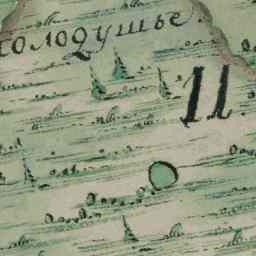 холодушье.
11.